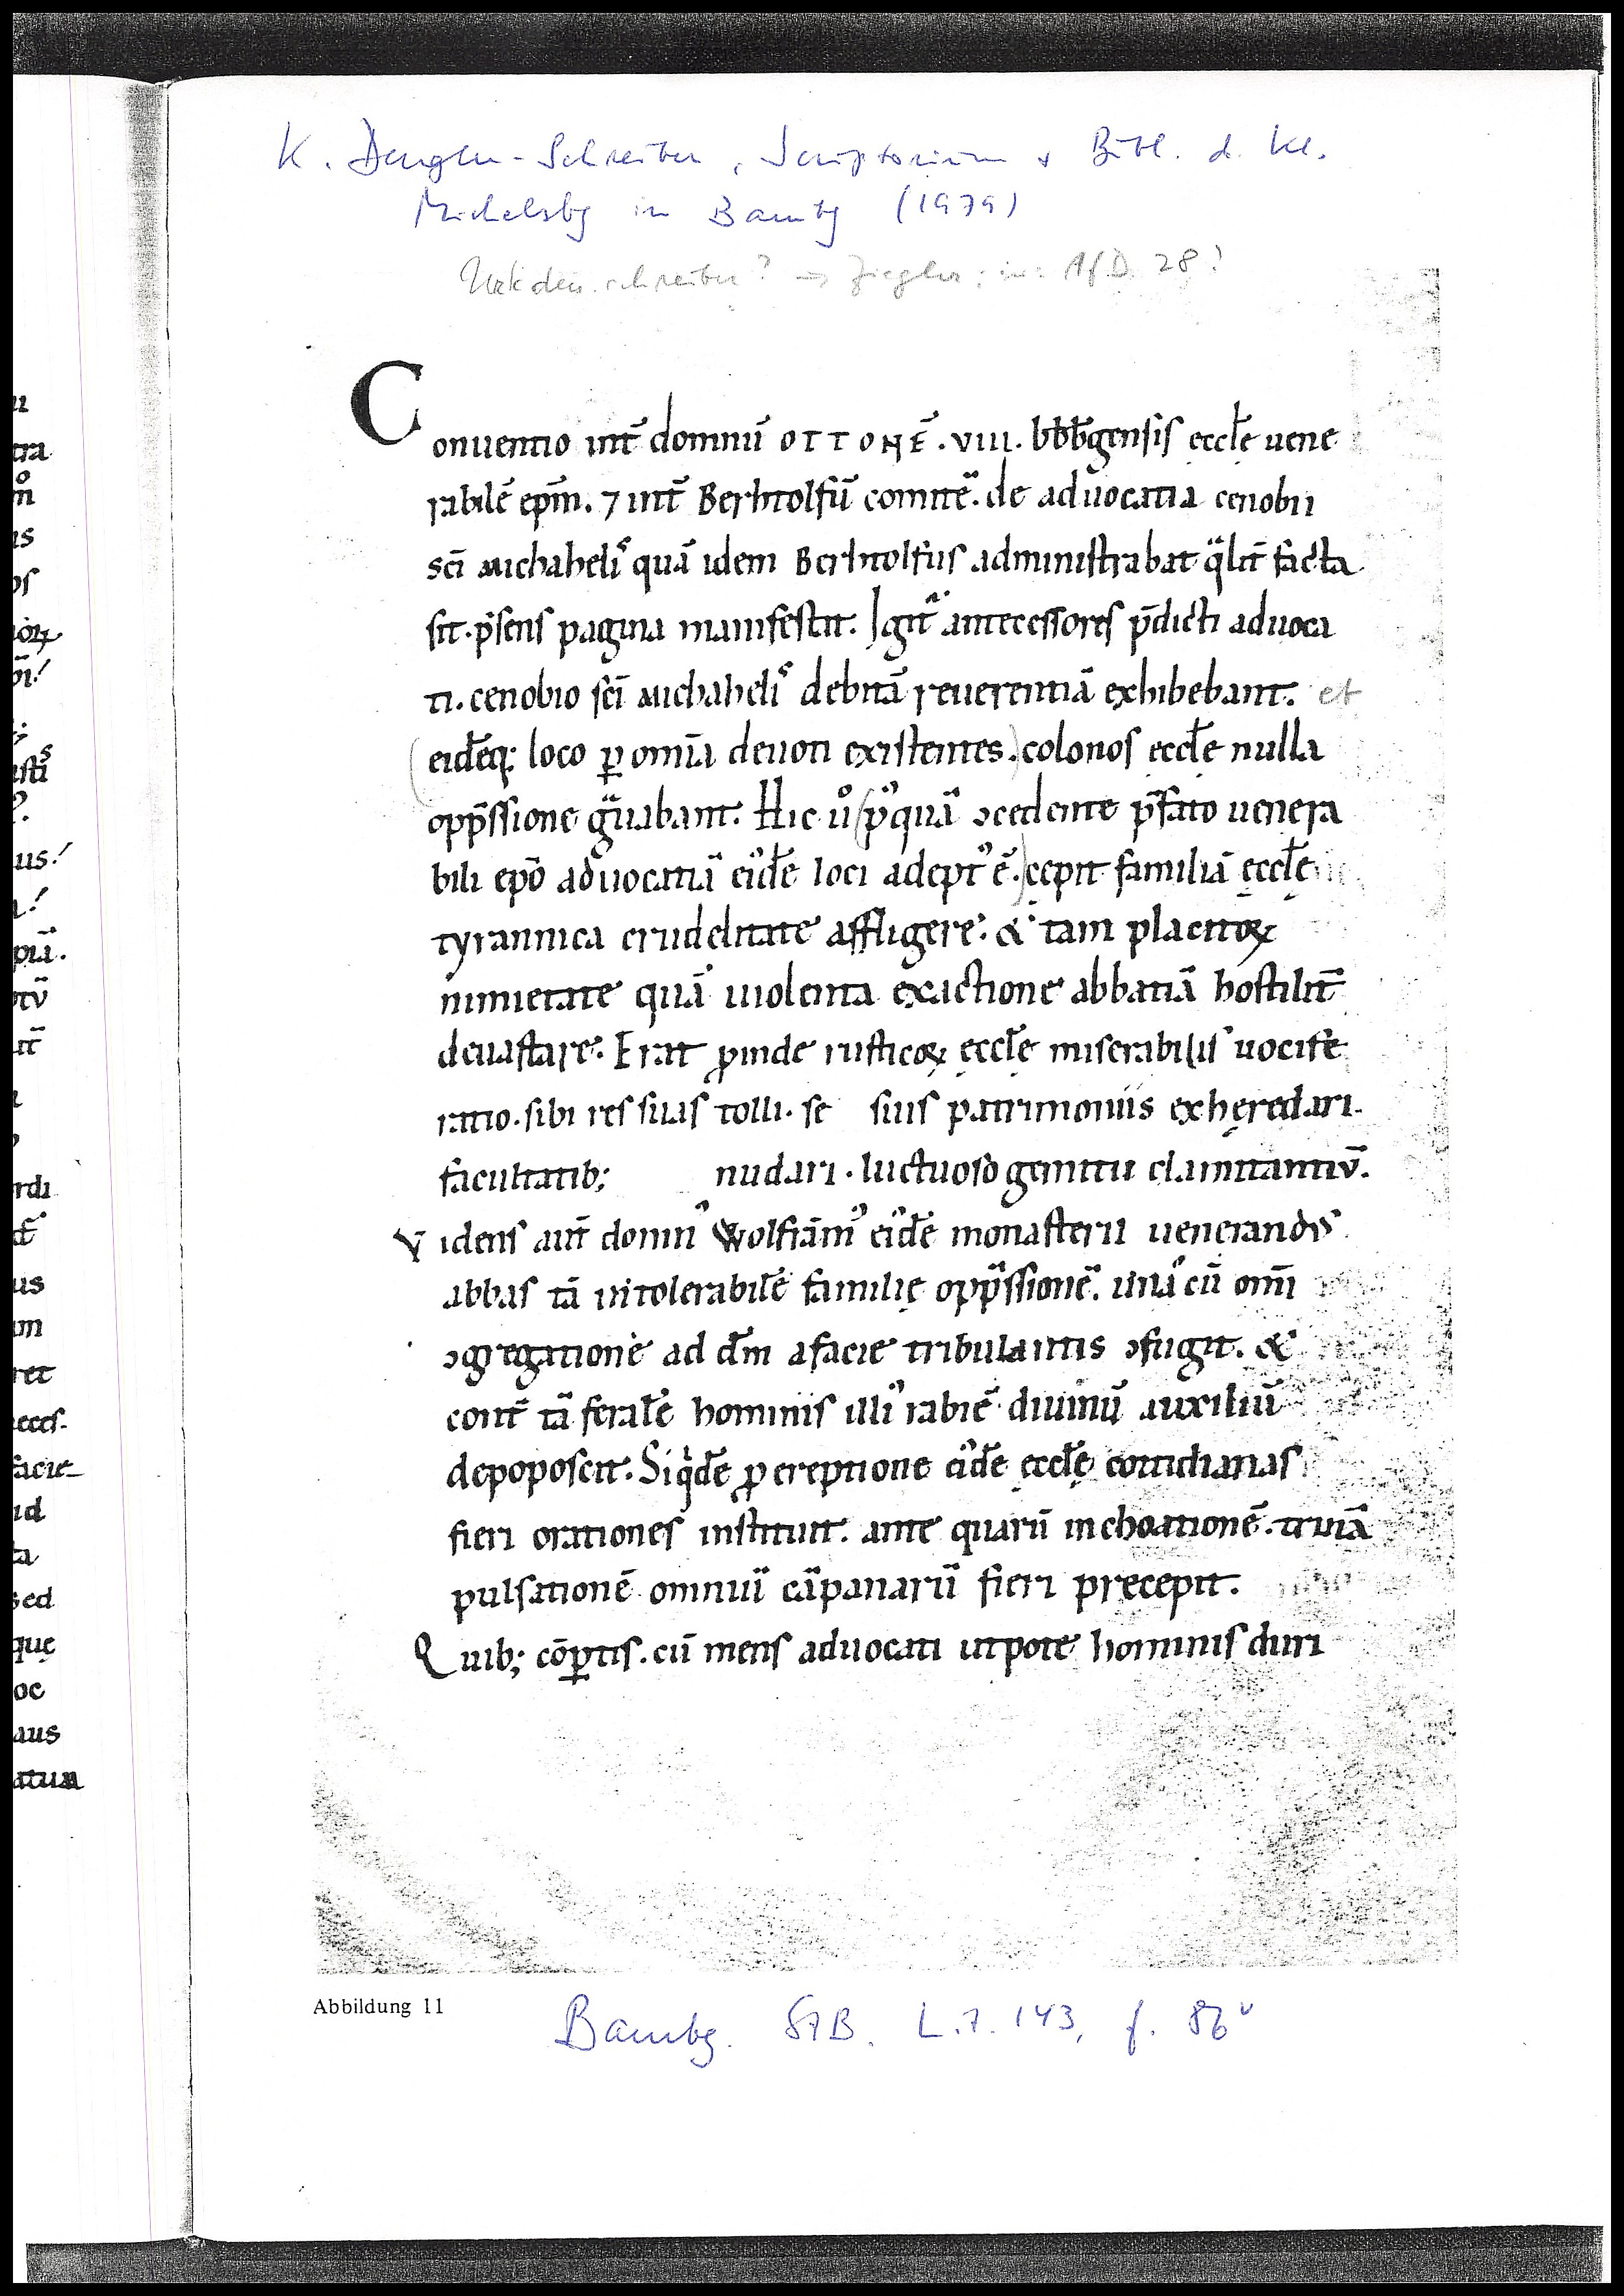 K. Dengler-Schreiber, Scriptorium + Bibl. d. Kl.
Michelsbg in Bambg (1979)
Urkdenschreiber? → Ziegler, in: AfD. 28?
Conuentio int̄ domnū OTTONĒ . VIII . bb̄b̄gensis eccl̄e uene
rabilē ep̄m. ⁊ int̄ Berhtolfū comitē. de aduocatia cenobii
sc̄i Michahelis quā idem Berhtolfus administrabat q̄lit̄ facta
sit. p̄sens pagina manifestat. Igit̄ antecessores p̄dicti aduoca
ti. cenobio sc̄i Michahelis debitā reuerentiā exhibebant. et
eidēq; loco ꝑ omīa deuoti existentes. colonos eccl̄e nulla
opp̄ssione g̃uabant. Hic uͦ pꝰquā ↄcedente p̄fato uenera
bili ep̄o aduocatiā eiꝰdē loci adeptꝰ ē. cepit familiā ęccl̄ę
tyrannica crudelitate affligere. & tam placitoꝝ
nimietate quā uiolenta exactione abbatiā hostilit̄
deuastare. Erat ꝓinde rusticoꝝ ęccl̄ę miserabilis uocife
ratio. sibi res suas tolli. se suis patrimoniis exhęredari.
facultatib; nudari. luctuoso gemitu clamitantiū.
Videns aut̄ domnꝰ Wolfrāmꝰ eiꝰdē monasterii uenerandꝰ
abbas tā intolerabilē familię opp̄ssionē. unā cū om̄i
ↄgregatione ad dm̄ a facie tribulantis ↄfugit. &
cont̄ tā feralē hominis illiꝰ rabiē diuinū auxiliū
depoposcit. Siqͥdē ꝓ ereptione eiꝰdē ęccl̄ę cottidianas
fieri orationes instituit. ante quarū inchoationē. trinā
pulsationē omniū cāpanarū fieri precepit.
Quib; cōꝑtis. cū mens aduocati utpote hominis duri
Abbildung 11
Bambg. StB. L.7.143, f. 86ᵛ